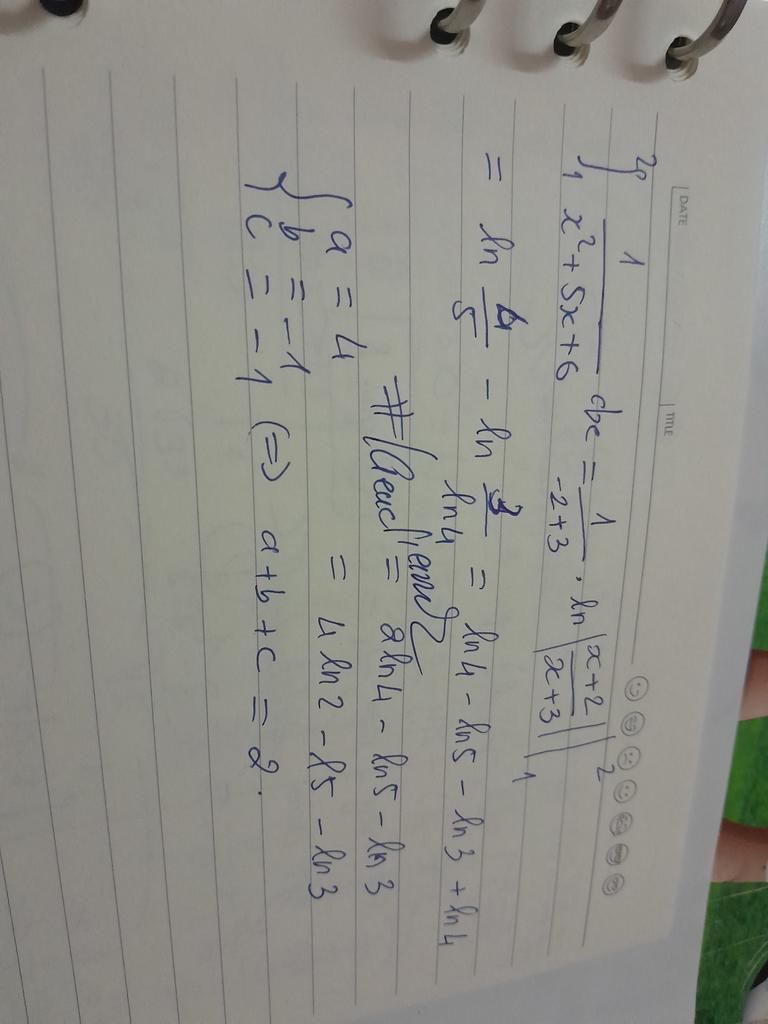 DATE
TITLE
∫₁² 1/(x²+5x+6) dx = 1/(-2+3) . ln |(x+2)/(x+3)| |₁²
= ln 4/5 - ln 3/ln4 = ln4 - ln5 - ln3 + ln4
= 2ln4 - ln5 - ln3
= 4 ln2 - l5 - ln3
{ a = 4
b = -1
c = -1 (=) a+b+c = 2.